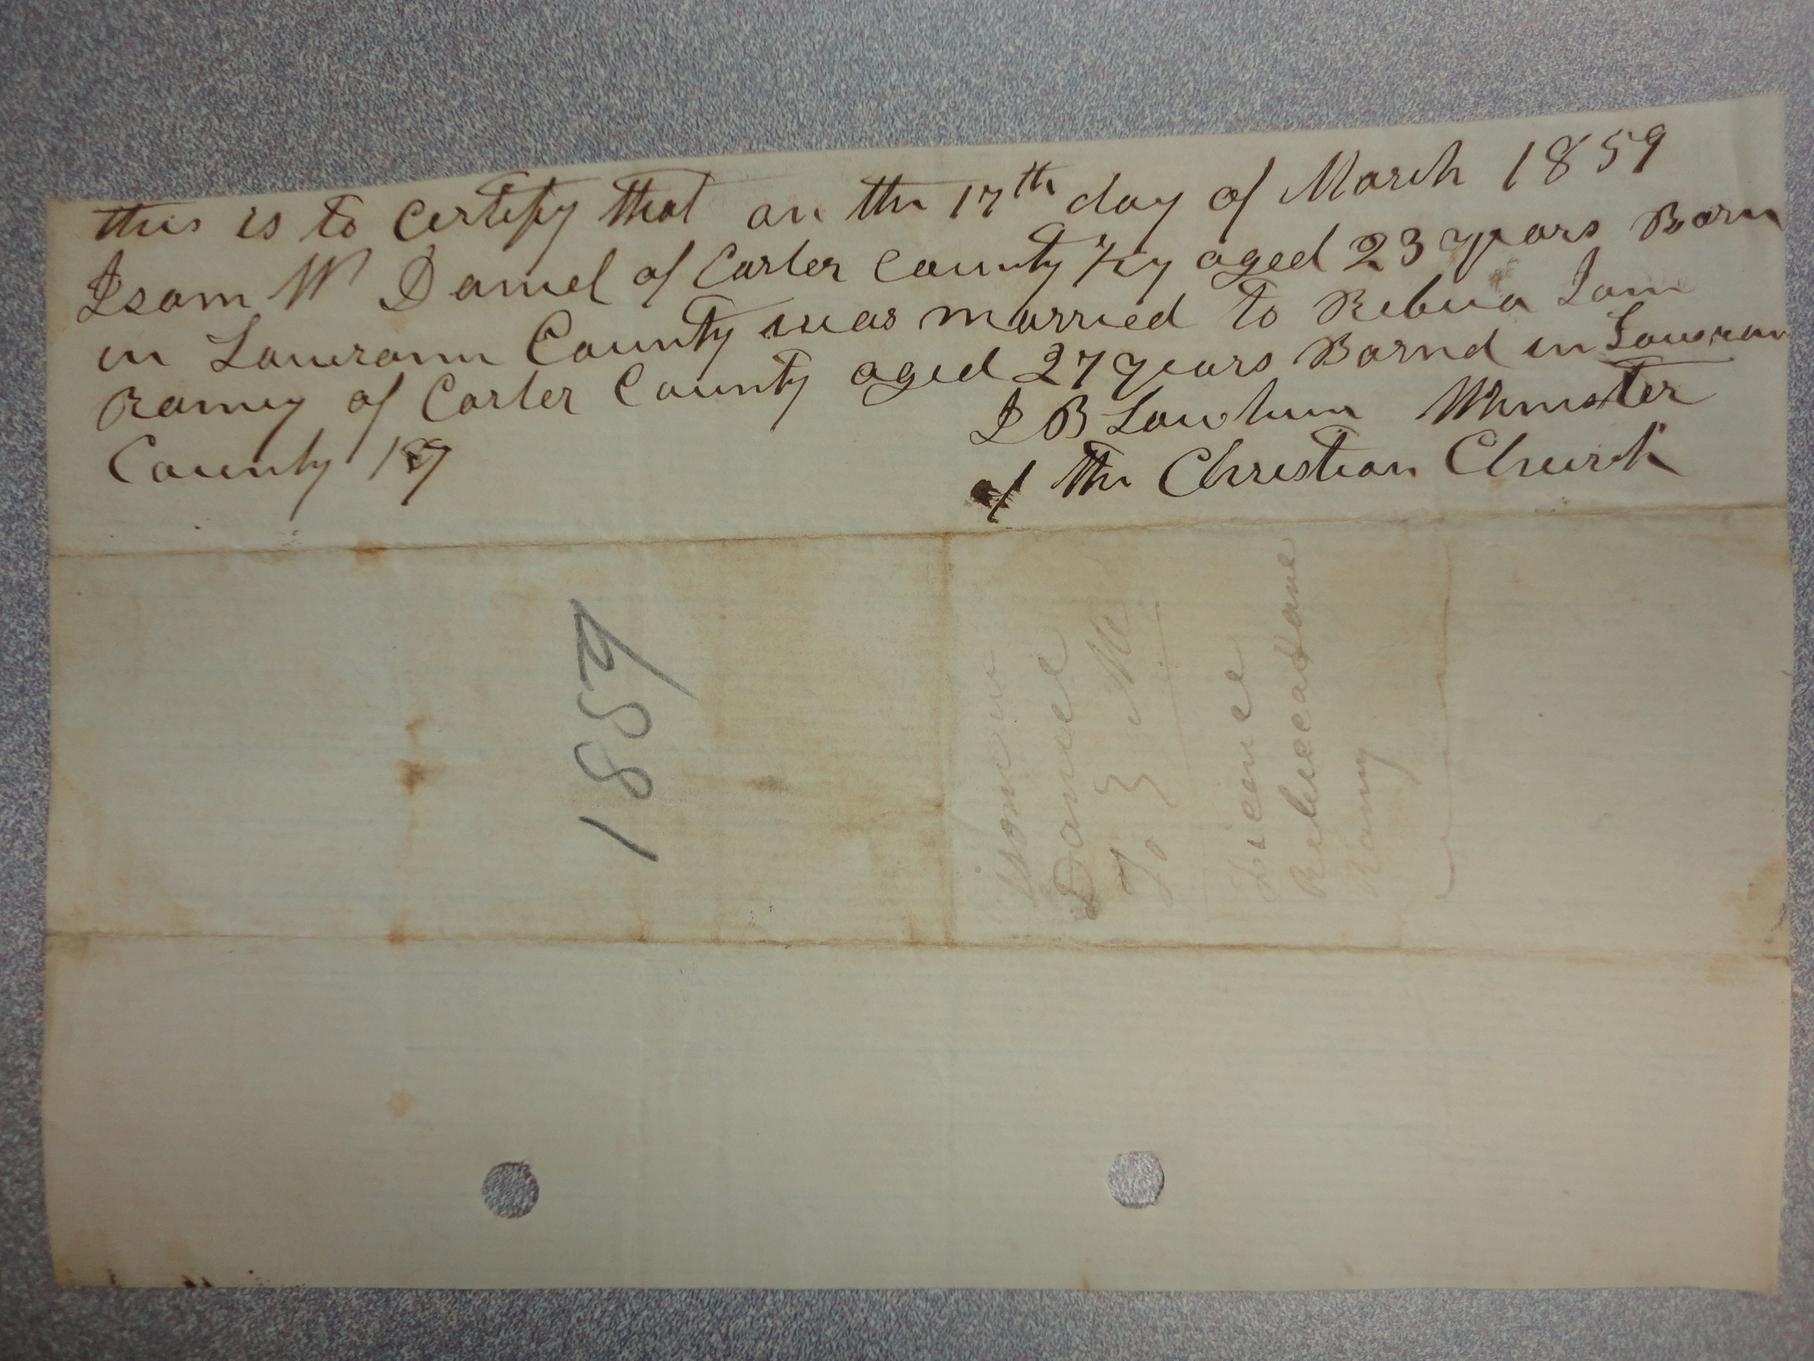 this is to certify that on the 17th day of March 1859
Isam W Daniel of Carter County Ky aged 23 years Born
in Lawrann County was married to Rebuca Jane
Ramey of Carter County aged 27 years Bornd in Lawran
County Ky
J B Lawhun Minister
of the Christian Church
1859
isom w
Daniel
To } Me
Licence
Rebuccah Jane
Ramy